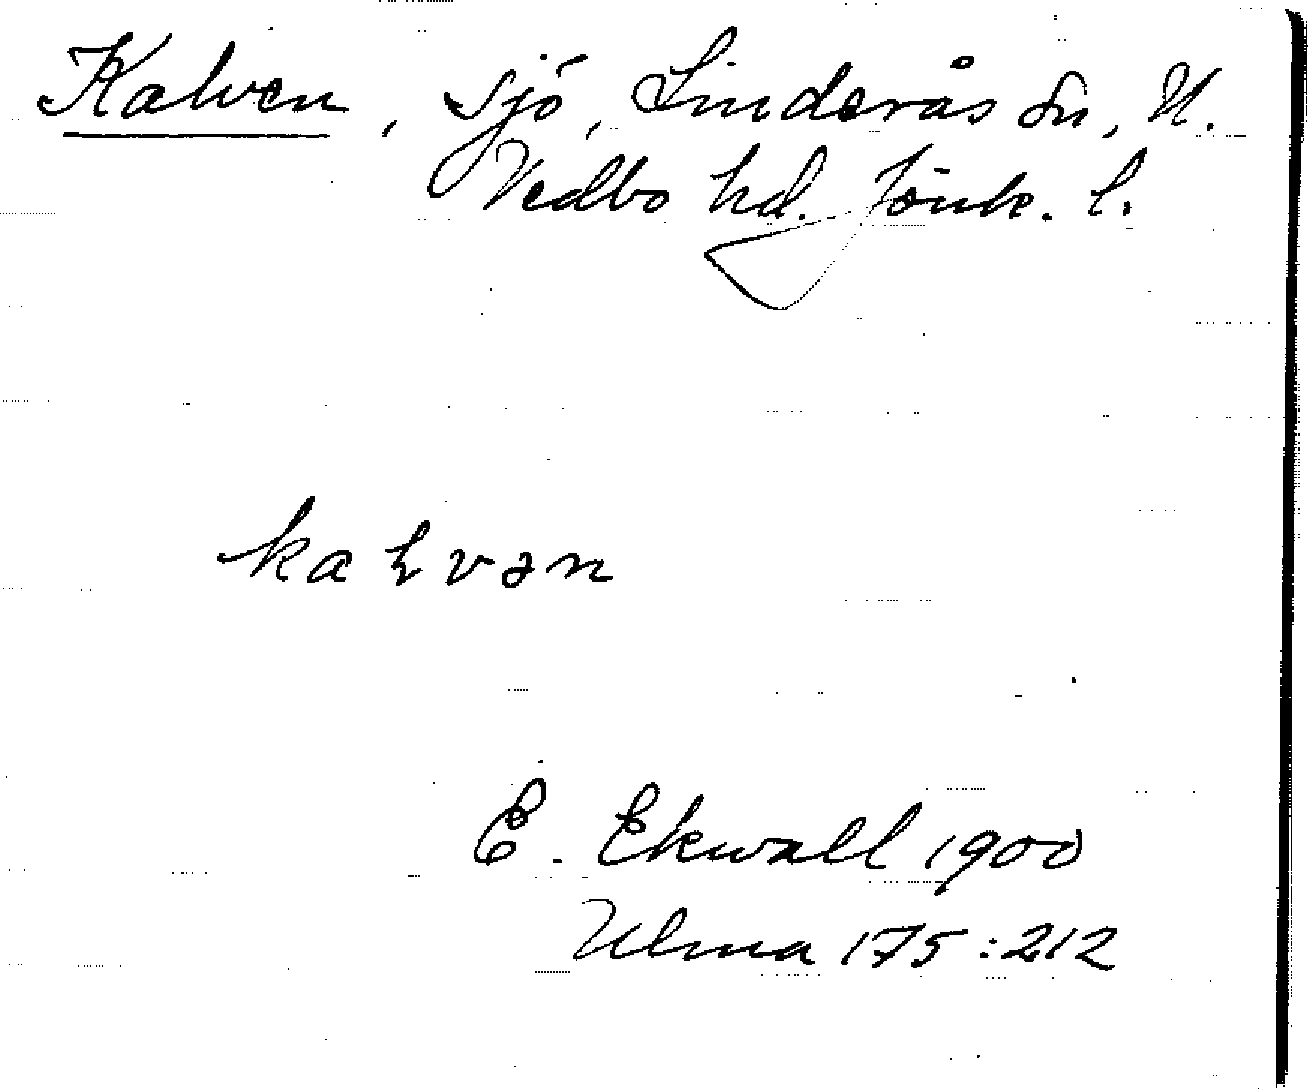 Kalven, sjö, Linderås sn, N.
Vedbo hd. Jönk. l.
kaɫvən
E. Ekwall 1900
Ulma 175:212